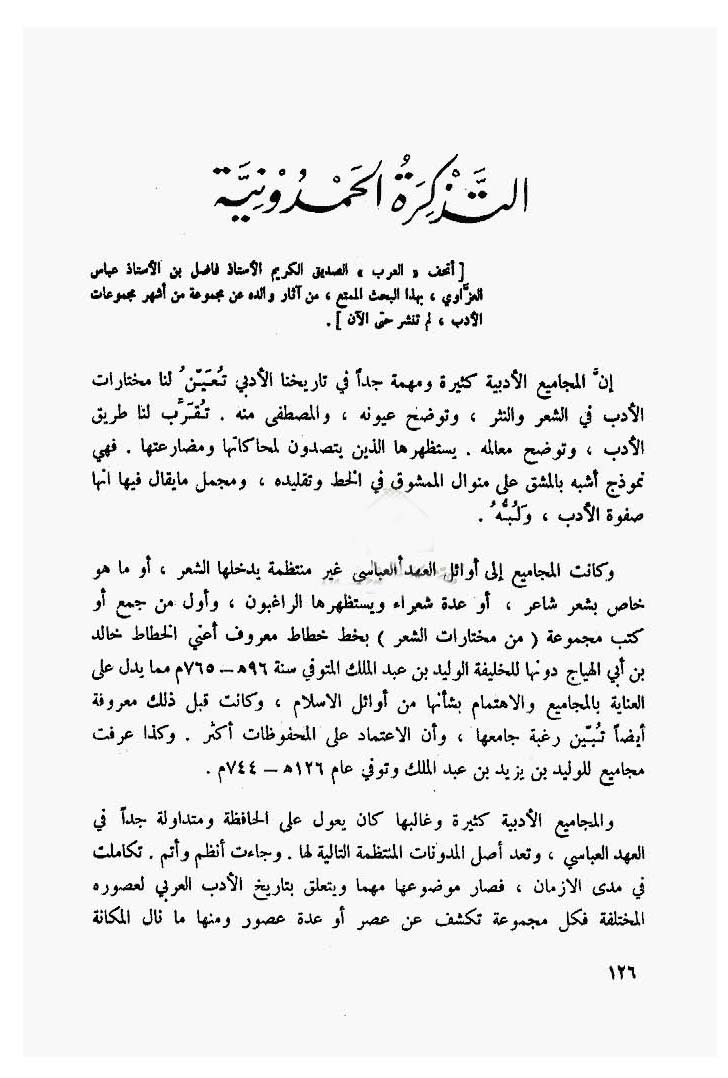 التَّذْكِرَةُ الحَمْدُونيَّة
[ أتحف « العرب » الصديق الكريم الأستاذ فاضل بن الأستاذ عباس
العزَّاوي ، بهذا البحث الممتع ، من آثار والده عن مجموعة من أشهر مجموعات
الأدب ، لم تنشر حتى الآن ] .
إنَّ المجاميع الأدبية كثيرة ومهمة جداً في تاريخنا الأدبي تُعَيّنُ لنا مختارات
الأدب في الشعر والنثر ، وتوضح عيونه ، والمصطفى منه . تُقَرّب لنا طريق
الأدب ، وتوضح معالمه . يستظهرها الذين يتصدون لمحاكاتها ومضارعتها . فهي
نموذج أشبه بالمشق على منوال الممشوق في الخط وتقليده ، ومجمل مايقال فيها انها
صفوة الأدب ، وَلُبُّهُ .
وكانت المجاميع إلى أوائل العهد العباسي غير منتظمة يدخلها الشعر ، أو ما هو
خاص بشعر شاعر ، أو عدة شعراء ويستظهرها الراغبون ، وأول من جمع أو
كتب مجموعة ( من مختارات الشعر ) بخط خطاط معروف أعني الخطاط خالد
بن أبي الهياج دونها للخليفة الوليد بن عبد الملك المتوفي سنة ٩٦ه‍ – ٧٦٥م مما يدل على
العناية بالمجاميع والاهتمام بشأنها من أوائل الاسلام ، وكانت قبل ذلك معروفة
أيضاً تُبيّن رغبة جامعها ، وأن الاعتماد على المحفوظات أكثر . وكذا عرفت
مجاميع للوليد بن يزيد بن عبد الملك وتوفي عام ١٢٦ه‍ – ٧٤٤م .
والمجاميع الأدبية كثيرة وغالبها كان يعول على الحافظة ومتداولة جداً في
العهد العباسي ، وتعد أصل المدونات المنتظمة التالية لها . وجاءت أنظم وأتم . تكاملت
في مدى الازمان ، فصار موضوعها مهما ويتعلق بتاريخ الأدب العربي لعصوره
المختلفة فكل مجموعة تكشف عن عصر أو عدة عصور ومنها ما نال المكانة
١٢٦